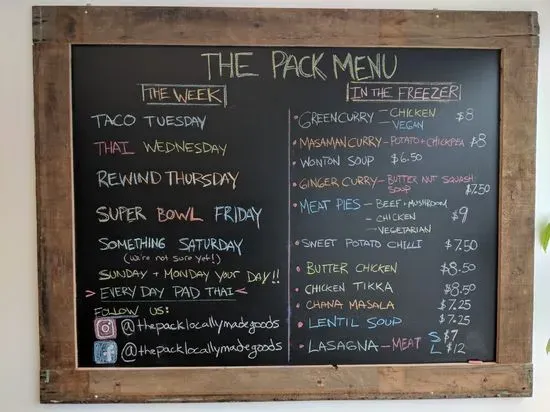 THE PACK MENU
THE WEEK
TACO TUESDAY
THAI WEDNESDAY
REWIND THURSDAY
SUPER BOWL FRIDAY
SOMETHING SATURDAY
(we're not sure yet!)
SUNDAY + MONDAY YOUR DAY!!
> EVERY DAY PAD THAI <
FOLLOW US:
@thepacklocallymadegoods
f @thepacklocallymadegoods
IN THE FREEZER
• GREEN CURRY — CHICKEN $8
— VEGAN
• MASAMAN CURRY — POTATO + CHICKPEA $8
• WONTON SOUP $6.50
• GINGER CURRY — BUTTER NUT SQUASH
SOUP $7.50
• MEAT PIES — BEEF + MUSHROOM
— CHICKEN $9
— VEGETARIAN
• SWEET POTATO CHILLI $7.50
• BUTTER CHICKEN $8.50
• CHICKEN TIKKA $8.50
• CHANA MASALA $7.25
• LENTIL SOUP $7.25
• LASAGNA — MEAT S $7
L $12